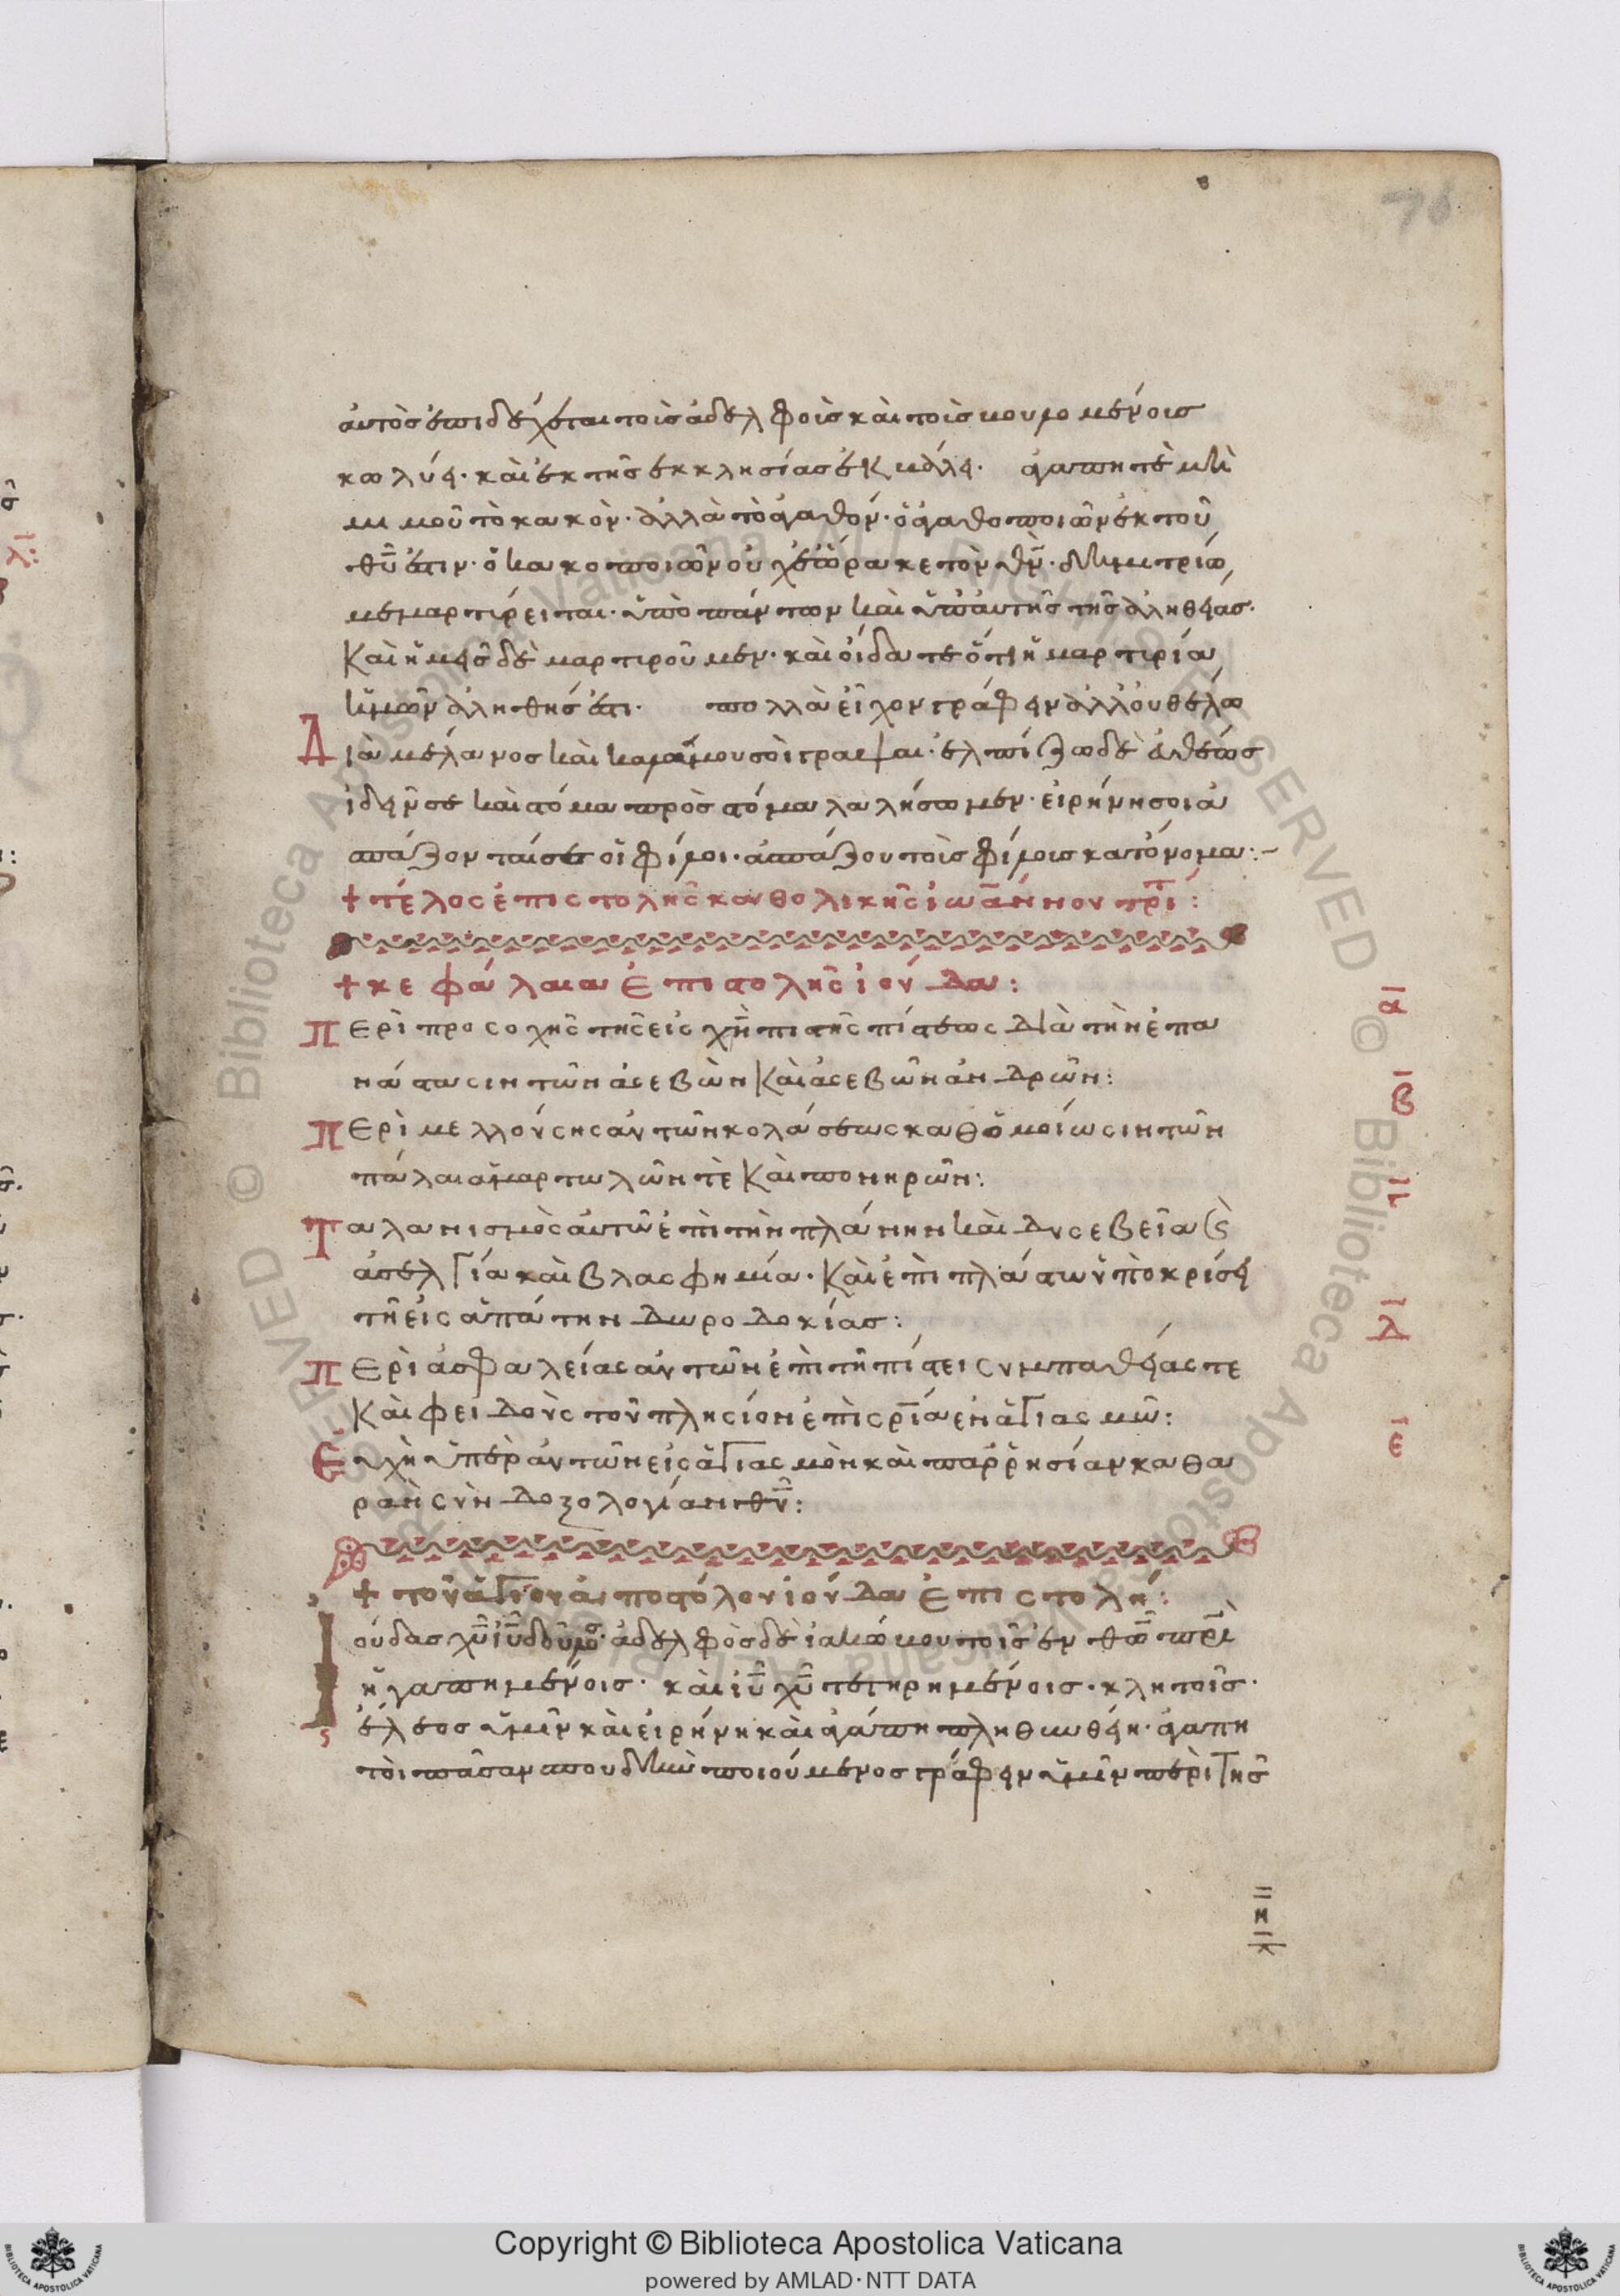 76
αυτὸσ ἐπιδέχεται τοὶσ ἀδελφοὶσ καὶ τοὶσ βουλομένοισ
κωλύει· καὶ ἐκ τῆσ ἐκκλησίασ ἐκβάλει· ἀγαπητὲ μὴ
μιμοῦ τὸ κακὸν· ἀλλὰ τὸ ἀγαθόν· ὁ ἀγαθοποιῶν ἐκ τοῦ
θῡ ἐστιν· ὁ κακοποιῶν οὐχ ἑώρακε τὸν θν̄· δημητρίω
μεμαρτίρειται· ὑπὸ πάντων καὶ ὑπ αὐτῆσ τῆσ ἀληθείασ·
Καὶ ἡμεῖσ δὲ μαρτιροῦμεν· καὶ οἴδατε ὅτι ἡ μαρτιρία
ἡμῶν ἀληθήσ ἐστι· πολλὰ εἶχον γράφειν ἀλλ οὐ θέλω
Διὰ μέλανοσ καὶ καλάμου σὸι γραψαι· ἐλπίζω δὲ εὐθέωσ
ἰδεῖν σε καὶ στόμα πρὸσ στόμα λαλήσωμεν· εἰρήνη σοι ἀ
σπάζονταί σε οἱ φίλοι· ἀσπάζου τοὶσ φίλοισ κατ όνομα:–
+ τέλος ἐπιςτολης καθολικῆς ἰωάννου τρι:
+ κεφάλαια ἐπιστολῆς ἰούδα:
Περὶ προςοχῆς τῆς εἰς χν̄ πιστῆς πίστεως διὰ τὴν ἐπα
νάσταςιν τῶν ἀςεβὼν Καὶ ἀςεβῶν ἀνδρῶν:
Περὶ μελλούςης αὐτῶν κολάσεως καθ ὁμοίωςιν τῶν
πάλαι ἁμαρτωλῶν τὲ Καὶ πονηρῶν:
Ταλανισμὸς αυτῶν ἐπὶ τὴν πλάνην καὶ δυςεβεία ϛ
ἀσελγία καὶ βλαςφημία· Καὶ ἐπὶ πλάστω ὑποκρίσει
τῆ εἰς ἀπάτην δωροδοκίασ:
Περὶ ἀσφαλείας αὐτῶν ἐπὶ τῆ πίστει ςυμπαθείας τε
Καὶ φειδοὺς τοῦ πλησίον ἐπὶ ςρ̄ία ἐν ἁγιαςμῶ:
Εὐχὴ ὑπὲρ αὐτῶν εἰς ἁγιαςμὸν καὶ παρρησίαν καθα
ρὰν ςὺν δοξολογίαν θῡ:
ᾱ
β̄
γ̄
δ̄
ε̄
+ τοῦ ἁγίου ἀποστόλου ἰούδα ἐπιςτολή:
Ἰούδασ χῡ ιῡ δοῦλοσ· ἀδελφὸσ δὲ ἰακώβου τοῖσ ἐν θω̄ πρ̄ὶ
ἠγαπημένοισ· καὶ ιῡ χῡ τετηρημένοισ· κλητοῖσ·
ἔλεοσ ὑμῖν καὶ εἰρήνη καὶ ἀγάπη πληθυνθείη· ἀγαπη
τὸι πᾶσαν σπουδὴν ποιούμενοσ γράφειν ὑμῖν περὶ τῆσ
Copyright © Biblioteca Apostolica Vaticana
powered by AMLAD·NTT DATA